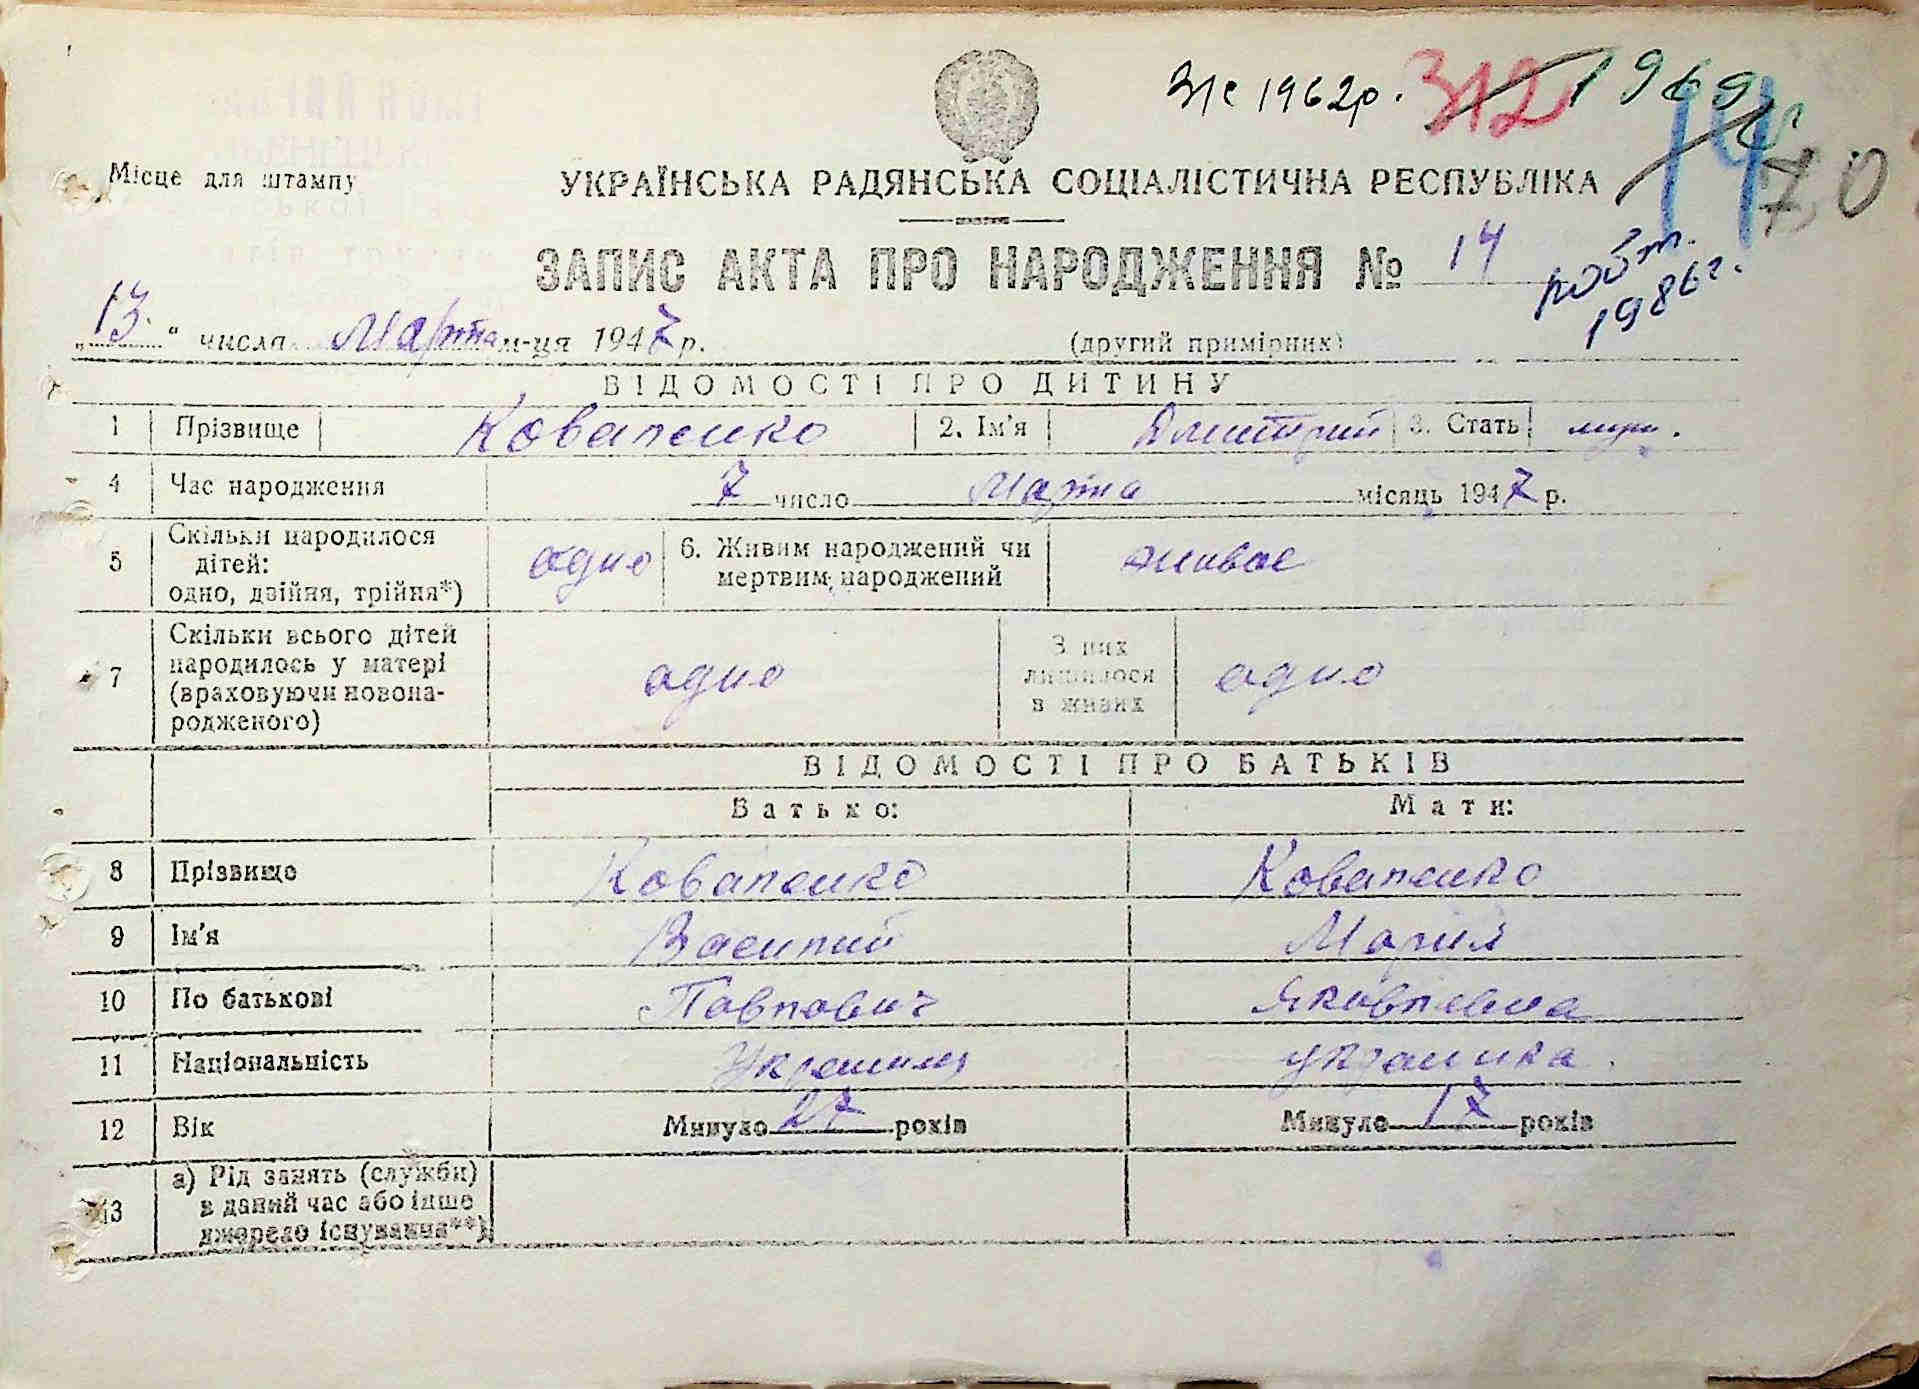 З/с 1962р. 312 1969
14
70
Місце для штампу
УКРАЇНСЬКА РАДЯНСЬКА СОЦІАЛІСТИЧНА РЕСПУБЛІКА
ЗАПИС АКТА ПРО НАРОДЖЕННЯ № 14
повт.
1986г.
„13." числа Марта м-ця 1947 р.
(другий примірник)
ВІДОМОСТІ ПРО ДИТИНУ
1 Прізвище Коваленко 2. Ім'я Дмитрий 3. Стать муж.
4 Час народження 7 число Марта місяць 1947 р.
5 Скільки народилося дітей: одно, двійня, трійня*) одно 6. Живим народжений чи мертвим народжений живое
7 Скільки всього дітей народилось у матері (враховуючи новонародженого) одно З них лишилося в живих одно
ВІДОМОСТІ ПРО БАТЬКІВ
Батько: Мати:
8 Прізвище Коваленко Коваленко
9 Ім'я Василий Мария
10 По батькові Павлович Яковлевна
11 Національність Украинец украинка.
12 Вік Минуло 27 років Минуло 17 років
13 а) Рід занять (служби) в даний час або інше джерело існування**)